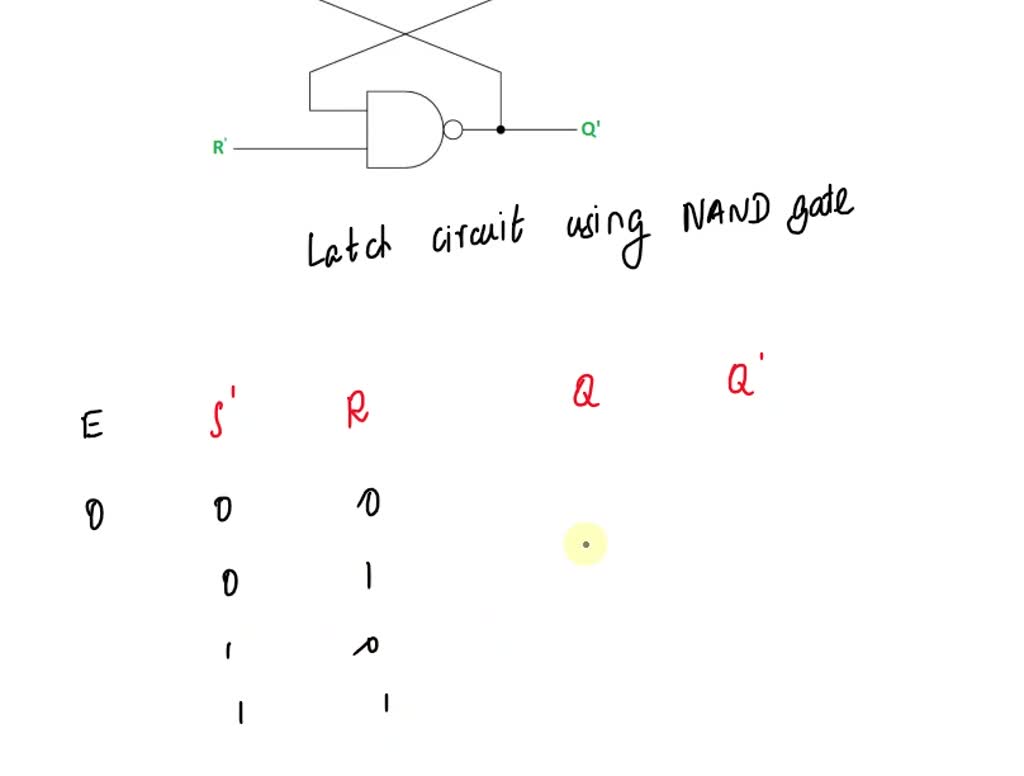 R' Q'
Latch circuit using NAND gate
E S' R Q Q'
0 0 0
0 1
1 0
1 1